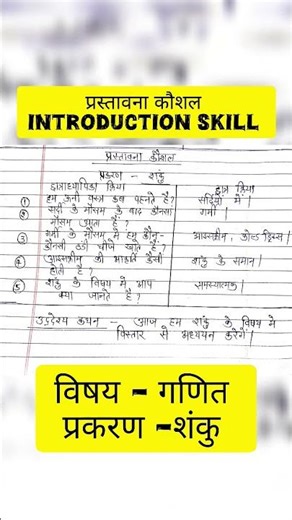 प्रस्तावना कौशल
INTRODUCTION SKILL
प्रस्तावना कौशल
प्रकरण - शंकु
छात्राध्यापिका क्रिया छात्र क्रिया
① हम ऊनी वस्त्र कब पहनते हैं? सर्दियों में।
② सर्दी के मौसम के बाद कौनसा गर्मी।
मौसम आता है?
③ गर्मी के मौसम में हम कौन- आइसक्रीम, कोल्ड ड्रिंक्स।
कौनसी ठंडी चीजें खाते हैं?
④ आइसक्रीम की आकृति कैसी शंकु के समान।
होती है?
⑤ शंकु के विषय में आप समस्यात्मक।
क्या जानते हैं?
उद्देश्य कथन - आज हम शंकु के विषय में
विस्तार से अध्ययन करेंगे।
विषय - गणित
प्रकरण -शंकु